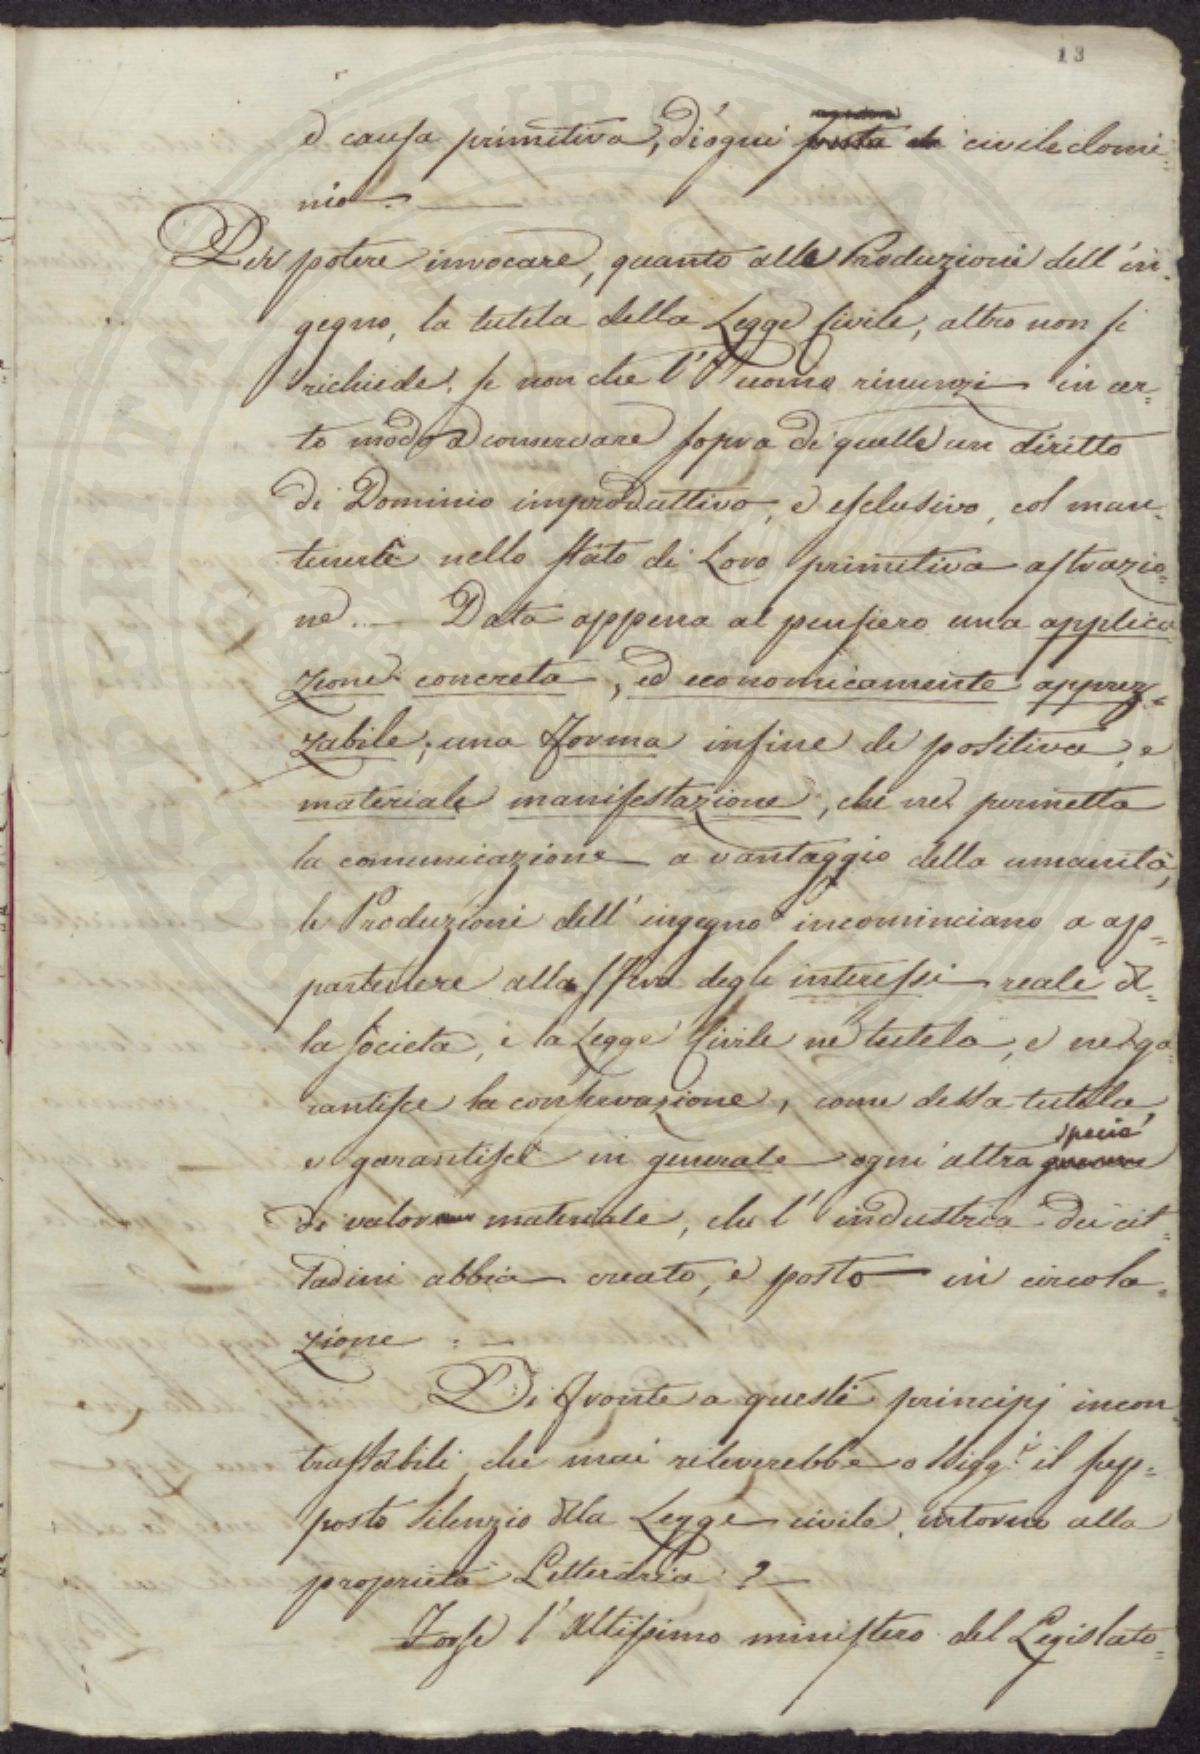 13
e causa primitiva, d'ogni civile domi=
nio. —
Per potere invocare, quanto alle Produzioni dell'in=
gegno, la tutela della Legge Civile, altro non si
richiede, se non che l'Uomo rinunzi in cer=
to modo a conservare sopra di quelle un diritto
di Dominio improduttivo, e esclusivo, col man=
tenerle nello stato di Loro primitiva astrazio=
ne. — Data appena al pensiero una applica
zione concreta, ed economicamente apprez=
zabile; una forma infine di positiva, e
materiale manifestazione, che ne permetta
la comunicazione a vantaggio della umanità,
le Produzioni dell'ingegno incominciano a ap=
partenere alla sfera degli interessi reali del=
la società, e la Legge Civile ne tutela, e ne ga=
rantisce la conservazione, come dessa tutela,
e garantisce in generale ogni altra specie
di valore materiale, che l'industria dei cit=
tadini abbia creato, e posto in circola=
zione. —
Di fronte a questi principj incon
trastabili che mai rileverebbe o Sigg.ri il sup=
posto silenzio della Legge civile, intorno alla
proprietà Letteraria? —
Forse l'Altissimo ministero del Legislato=